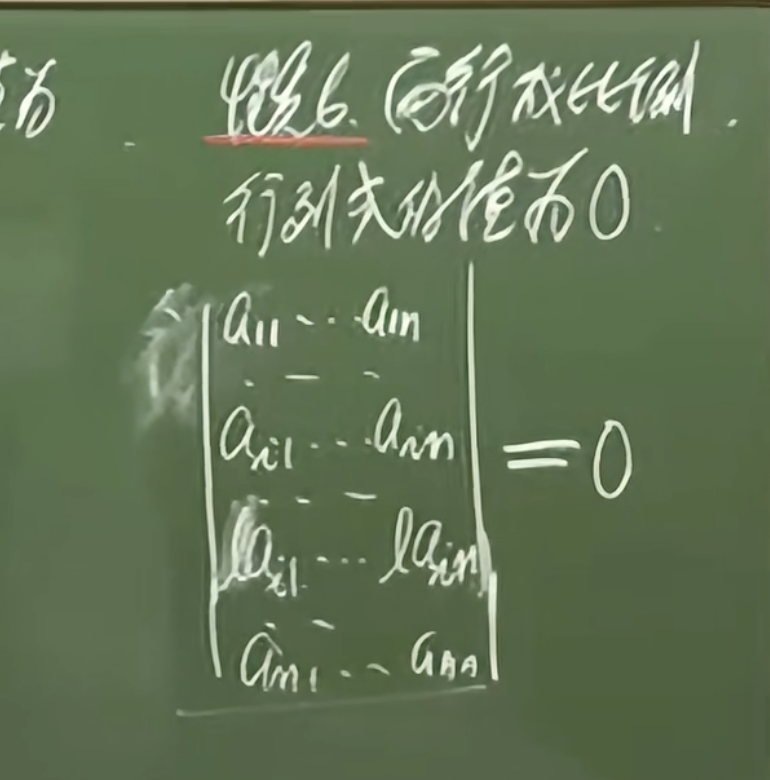 值为
性质6. 两行成比例.
行列式的值为0
| a₁₁ ... a₁ₙ |
| aᵢ₁ ... aᵢₙ | = 0
| laᵢ₁ ... laᵢₙ |
| aₙ₁ ... aₙₙ |